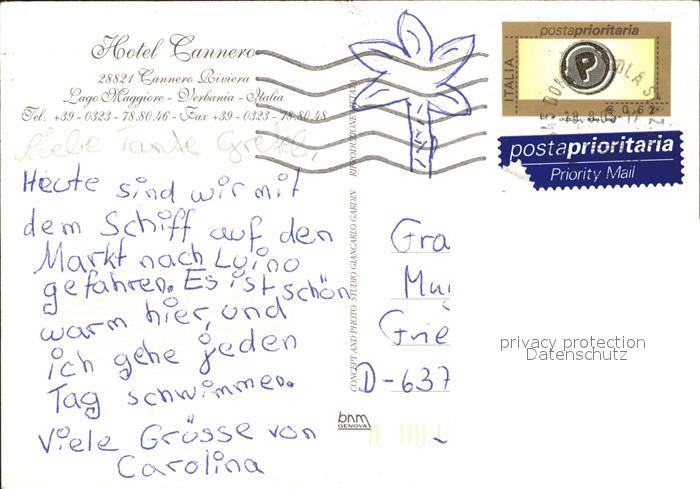 Hotel Cannero
28821 Cannero Riviera
Lago Maggiore - Verbania - Italia
Tel. +39 - 0323 - 78.80.46 - Fax +39 - 0323 - 78.80.48
Liebe Tante Gretel,
Heute sind wir mit
dem Schiff auf den
Markt nach Luino
gefahren. Es ist schön
warm hier, und
ich gehe jeden
Tag schwimmen.
Viele Grüsse von
Carolina
CONCEPT AND PHOTO: STUDIO GIANCARLO GARDIN
RIPRODUZIONE VIETATA
bnm
GENOVA
postaprioritaria
ITALIA
P
€ 0,62
postaprioritaria
Priority Mail
Gra
Mu
Grie
D-637
privacy protection
Datenschutz